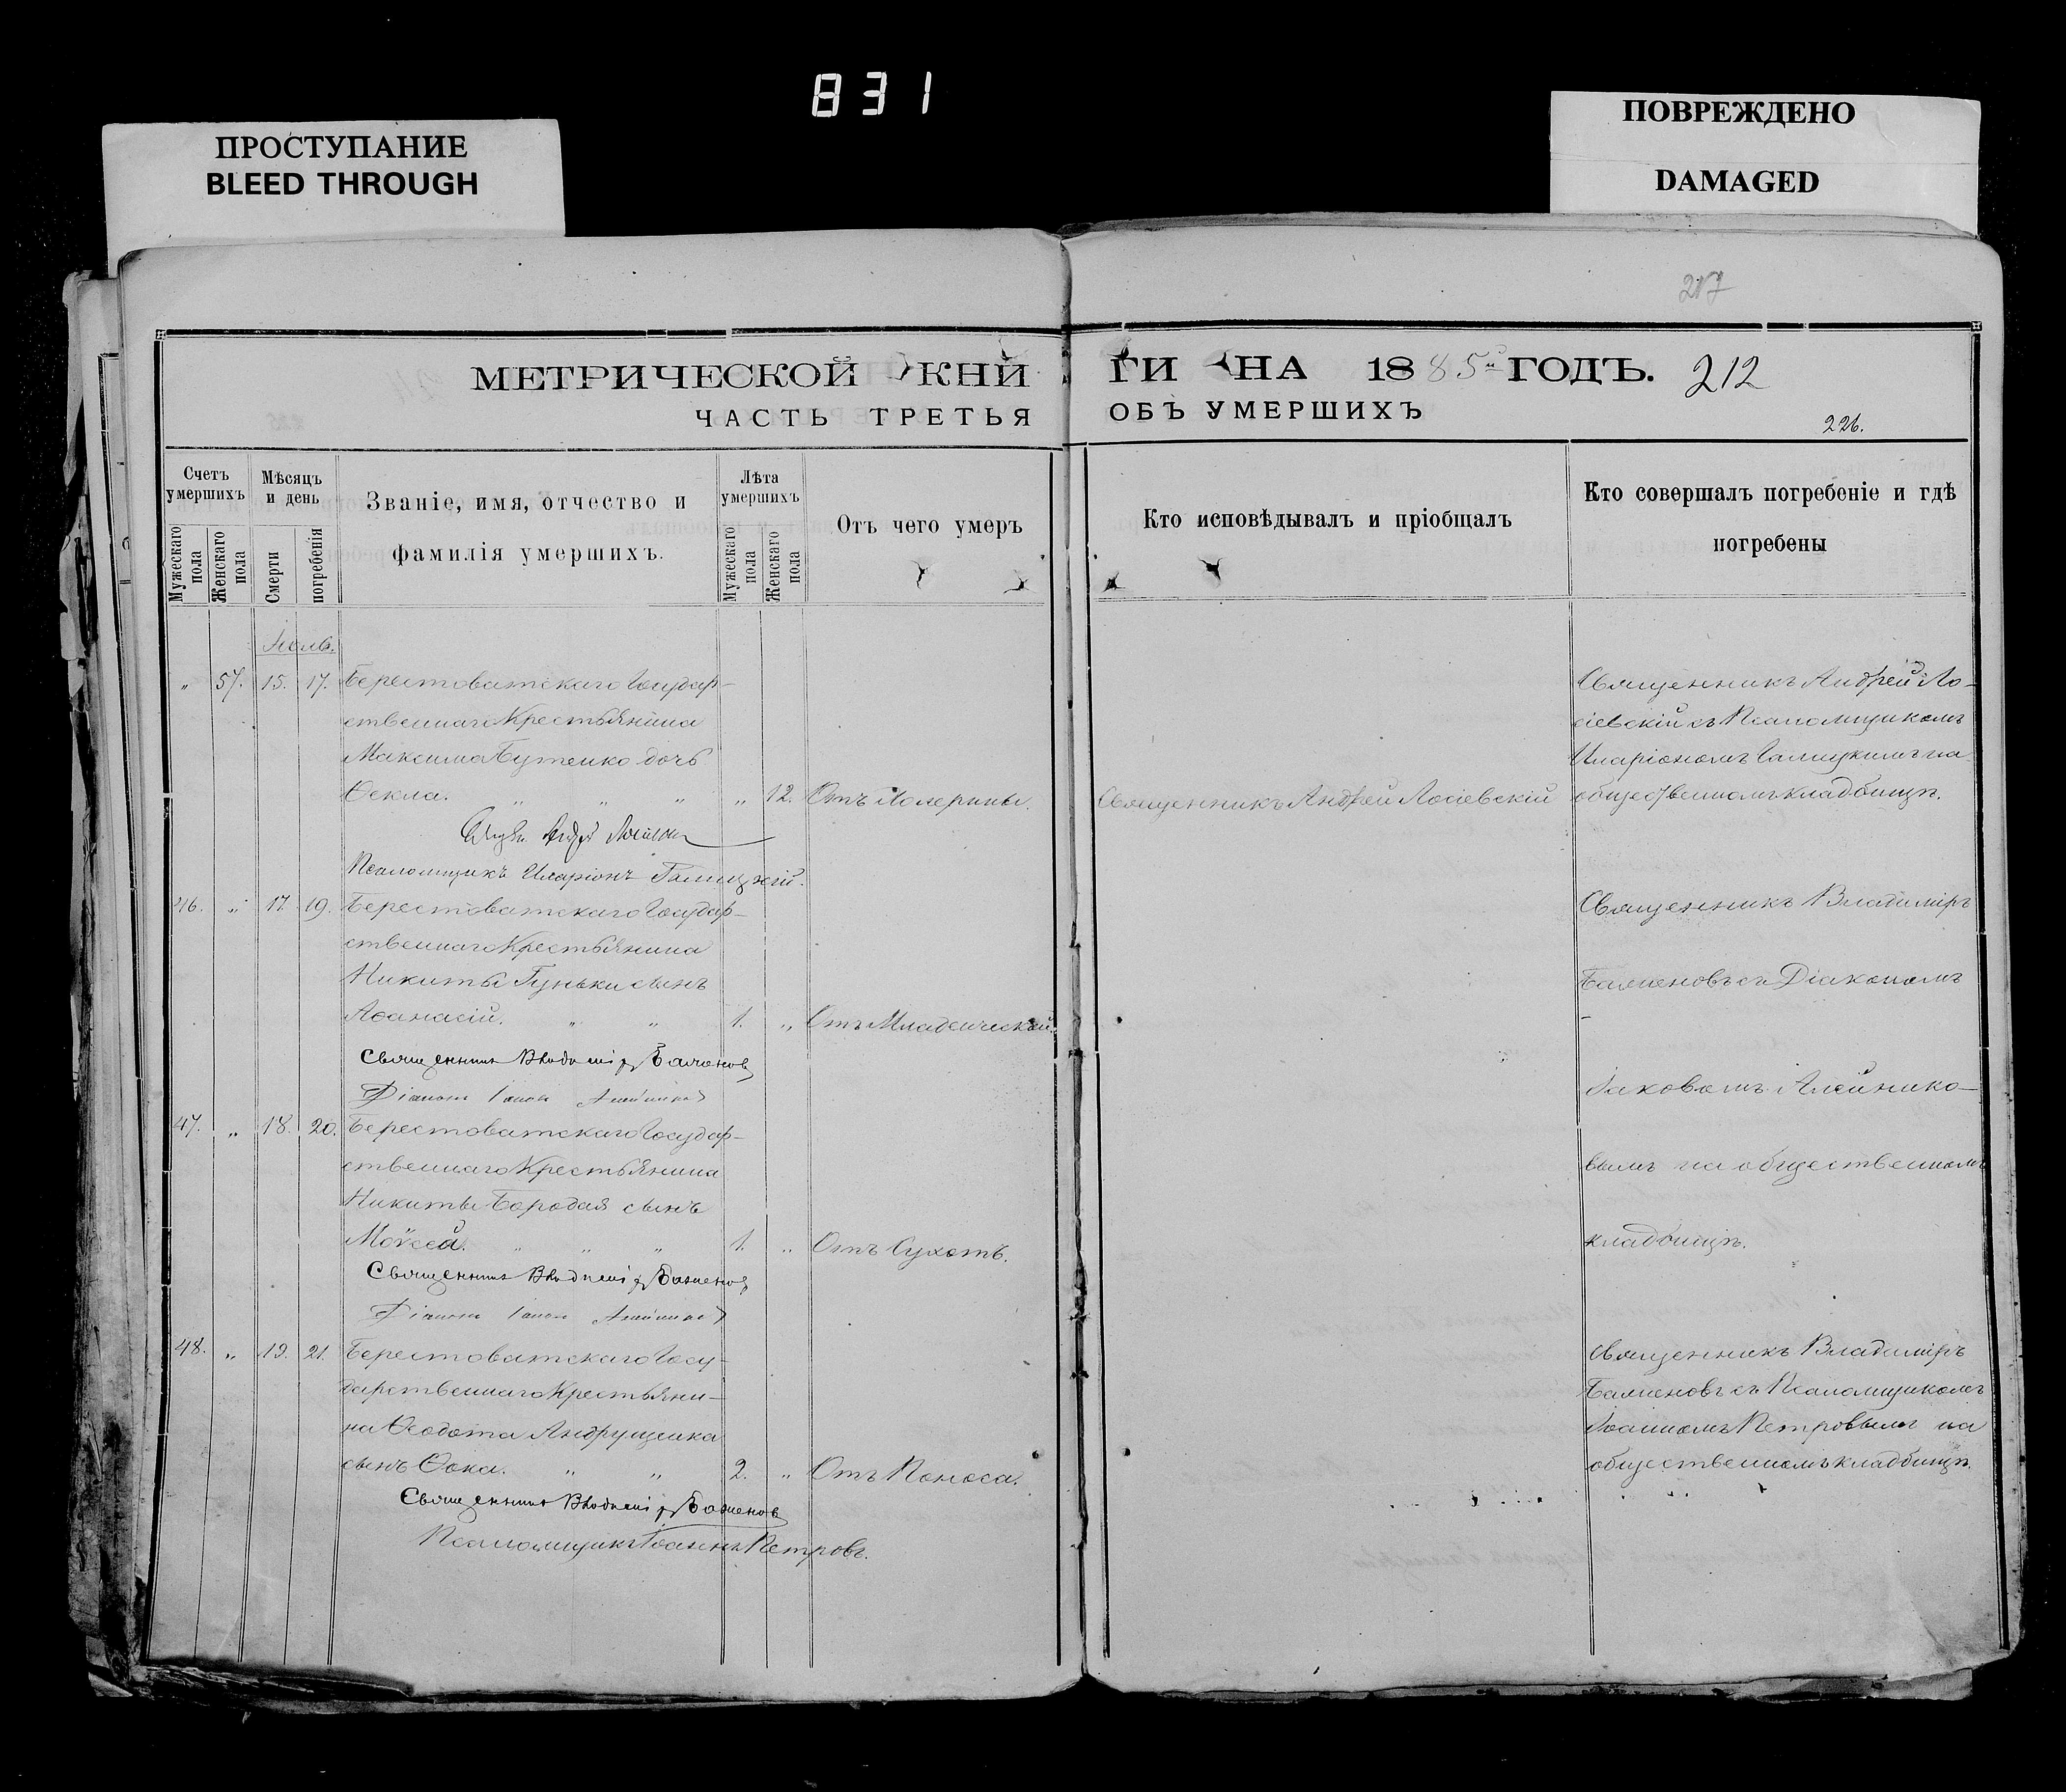 831
ПРОСТУПАНИЕ
BLEED THROUGH
ПОВРЕЖДЕНО
DAMAGED
217
МЕТРИЧЕСКОЙ КНИ
ГИ НА 1885й ГОДЪ. 212
ЧАСТЬ ТРЕТЬЯ
ОБЪ УМЕРШИХЪ
226.
Счетъ умершихъ
Мужескаго пола
Женскаго пола
Мѣсяцъ и день
Смерти
погребенія
Званіе, имя, отчество и
фамилія умершихъ.
Лѣта умершихъ
Мужескаго пола
Женскаго пола
Отъ чего умеръ
Кто исповѣдывалъ и пріобщалъ
Кто совершалъ погребеніе и гдѣ
погребены
„ 57. 15. 17. Берестоватскаго Государ-
ственнаго Крестьянина
Максима Бутенко дочь
Ѳекла. „ „ „ „ 12. Отъ Холерины.
Священникъ Андрей Лосіевскій
Священникъ Андрей Ло-
сіевскій съ Псаломщикомъ
Иларіономъ Галицкимъ на
общественномъ кладбищѣ.
Псаломщикъ Иларіонъ Галицкій.
46. „ 17. 19. Берестоватскаго Государ-
ственнаго Крестьянина
Никиты Гуньки сынъ
Аѳанасій. „ „ 1. „ Отъ Младенческой.
Священникъ Владиміръ Баженовъ
Діаконъ
47. „ 18. 20. Берестоватскаго Государ-
ственнаго Крестьянина
Никиты Бородая сынъ
Моѵсей. „ „ „ 1. „ Отъ Сухотъ.
Священникъ Владиміръ Баженовъ
Діаконъ
Священникъ Владиміръ
Баженовъ съ Діакономъ
Іаковомъ Алейнико-
вымъ на общественномъ
кладбищѣ.
48. „ 19. 21. Берестоватскаго Госу-
дарственнаго Крестьяни-
на Ѳеодота Андрущенка
сынъ Ѳока. „ „ 2. „ Отъ Поноса.
Священникъ Владиміръ Баженовъ
Псаломщикъ Іоаннъ Петровъ.
Священникъ Владиміръ
Баженовъ съ Псаломщикомъ
Іоанномъ Петровымъ на
общественномъ кладбищѣ.